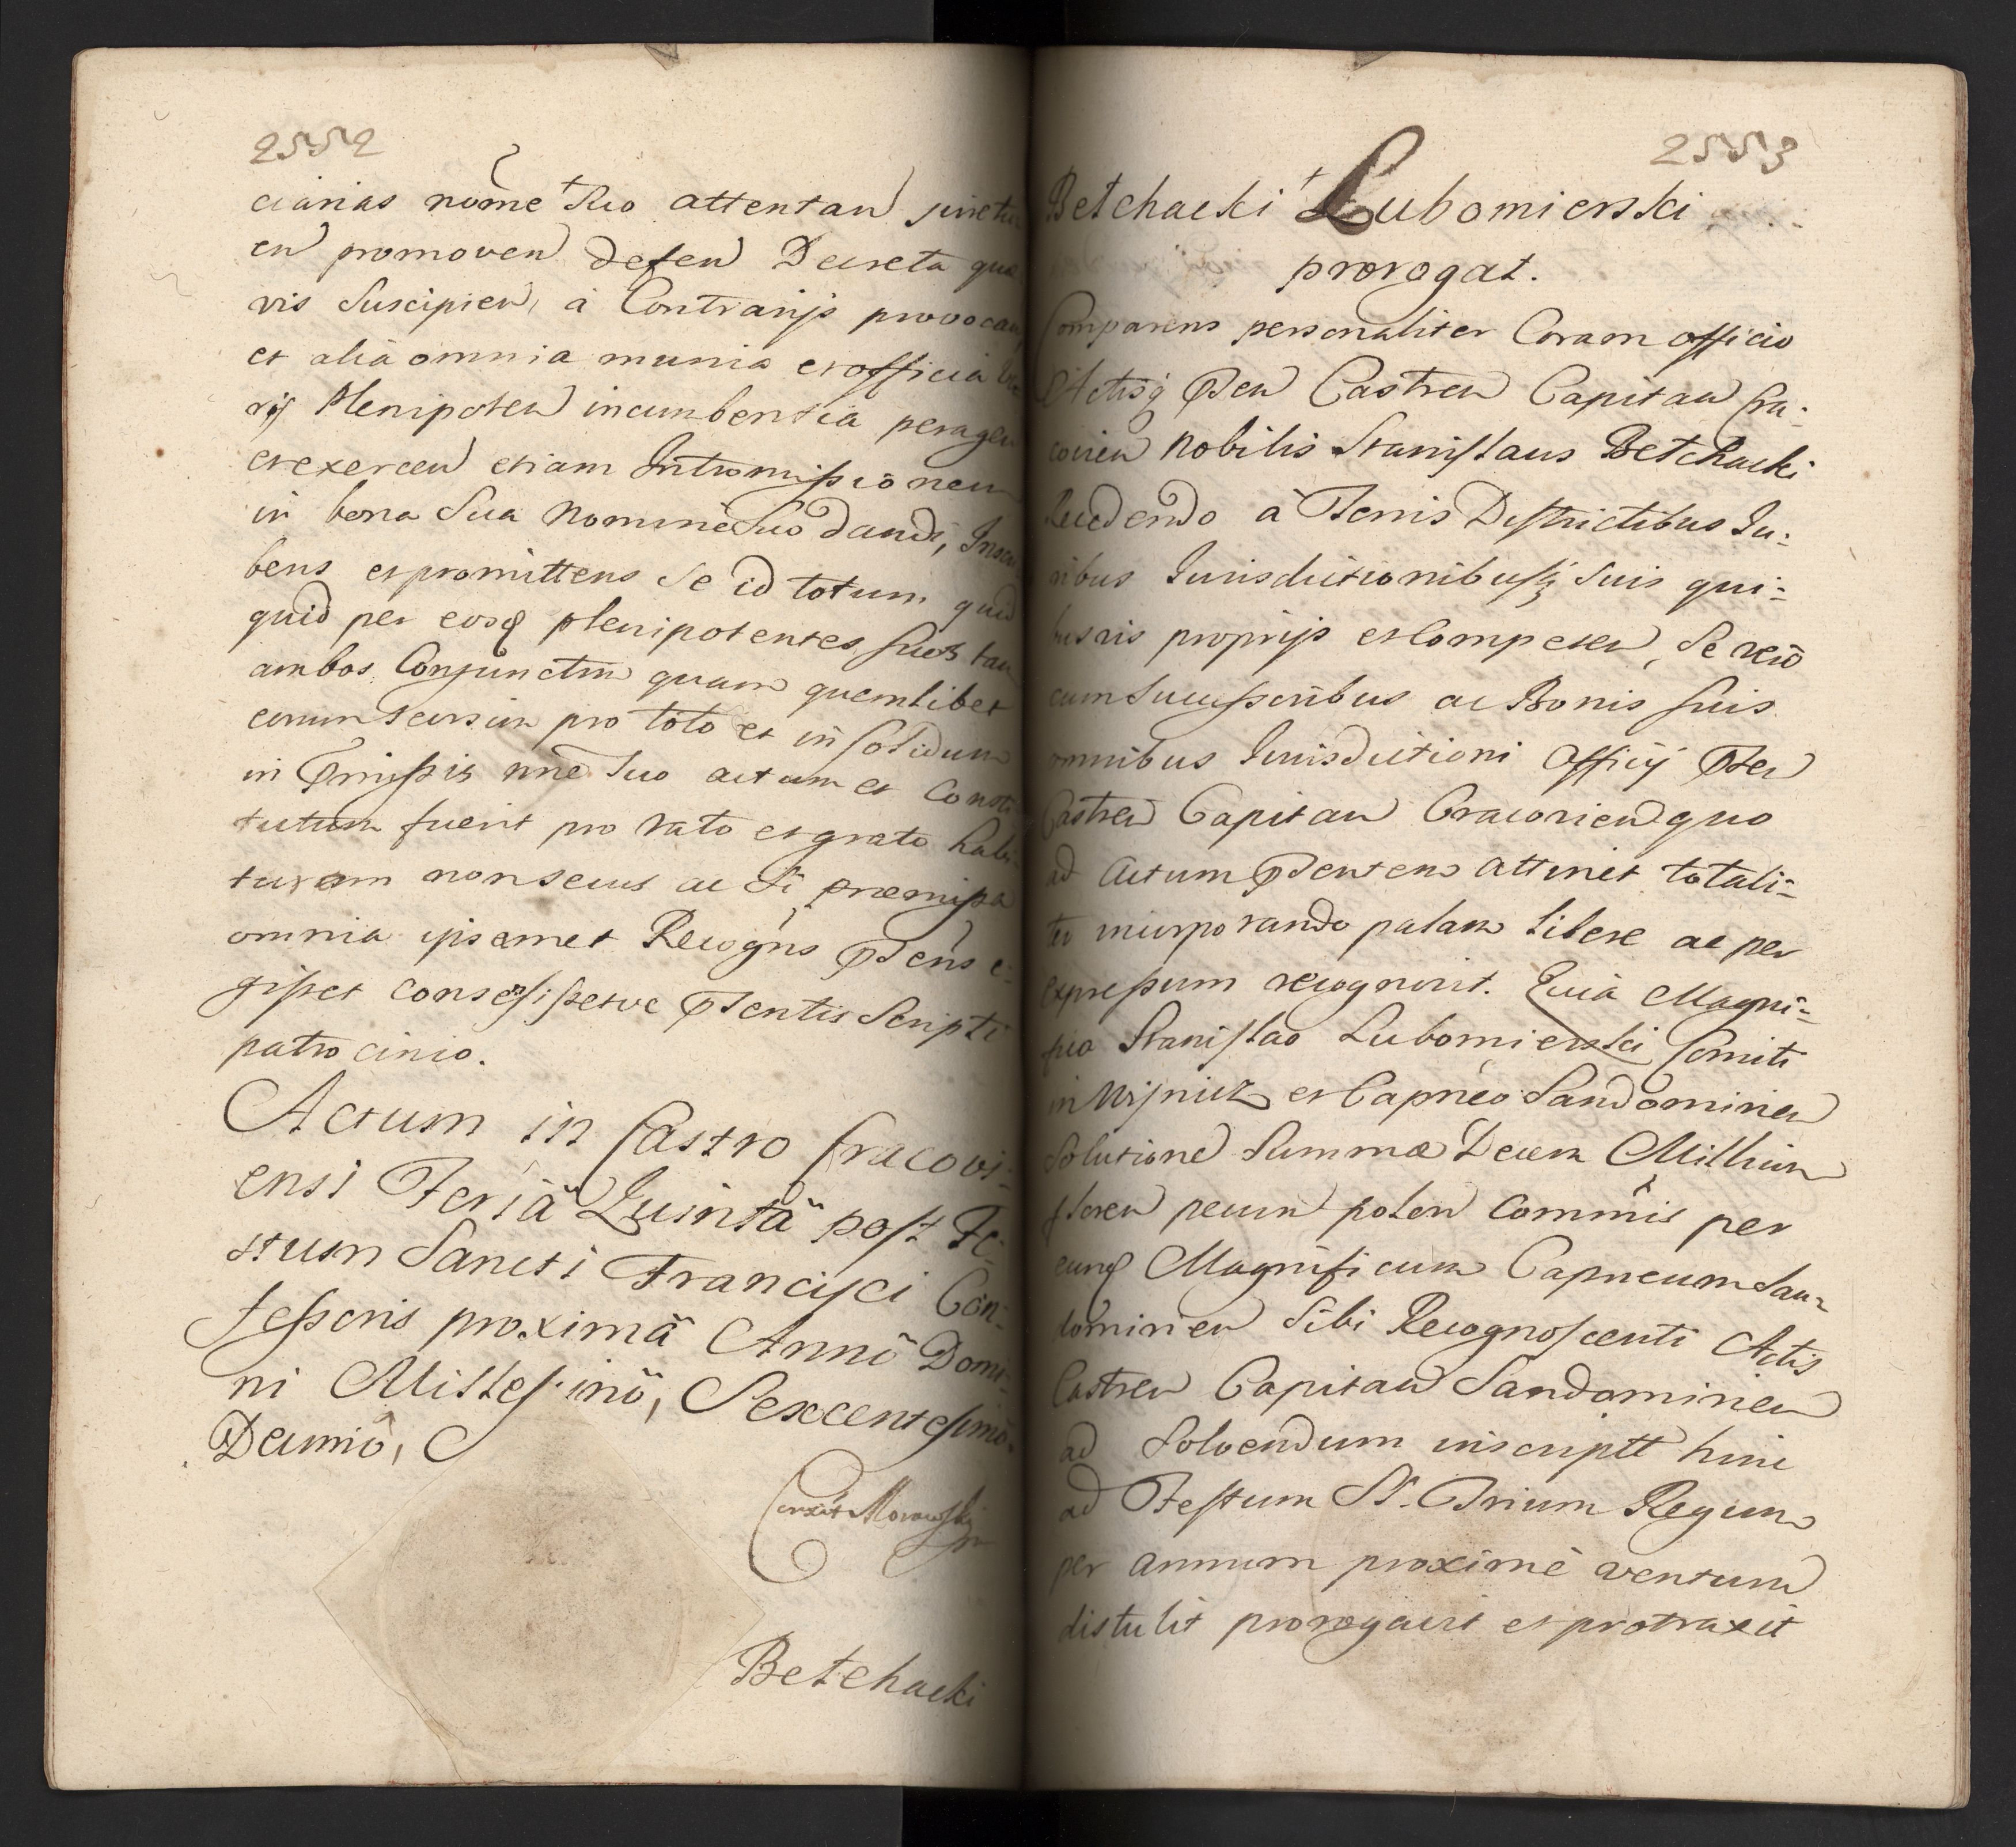 2552
ciarias nõme suo attentan
en promoven defen Decreta qua
vis Suscipien, à Contrarijs provocan
et alia omnia munia et officia
Plenipoten incumbentia peragen
et exercen etiam Intromissionem
in bona Sua Nomine Suo dandi,
bens et promittens Se id totum quid
quid per eosq plenipotentes suos tam
ambos Conjunctim quam quemlibet
eorum seorsim pro toto et in solidum
in pmissis nne Suo actum et Consti
tutum fuerit pro rato et grato habi
turum non secus ac Si præmissa
omnia ipsemet Recogns psens e-
gisset consesisset ve psentis Scripti
patrocinio.
Actum in Castro Cracovi-
ensi Feriâ Quintâ post Fe-
stum Sancti Francisci Con-
fessoris proximâ Annô Domi-
ni Millesimô, Sexcentesimô
Decimô,
Betchacki
2553
Betchacki Lubomierski
prorogat.
Comparens personaliter Coram officio
Actisq psen Castren Capitan Cra-
covien Nobilis Stanislaus Betchacki
Recedendo à Terris Districtibus Ju-
ribus Jurisdictionibusq Suis qui-
busvis proprijs et Competen, Se verô
cum Successoribus ac Bonis suis
omnibus Jurisdictioni Officij psen
Castren Capitan Cracovien quo
ad Actum psentem attinet totali-
ter incorporando palam libere ac per
expressum recognovit. Quia Magni-
fico Stanislao Lubomierski Comiti
in Wisnicz et Capneo Sandomirien
Solutione Summæ Decem Millium
floren pecun polon Commnis per
eunq Magnificum Capneum San-
domirien Sibi Recognoscenti Actis
Castren Capitan Sandomirien
ad Solvendum inscriptt hinc
ad Festum St. Trium Regum
per annum proximè ventum
distulit prorogavit et protraxit